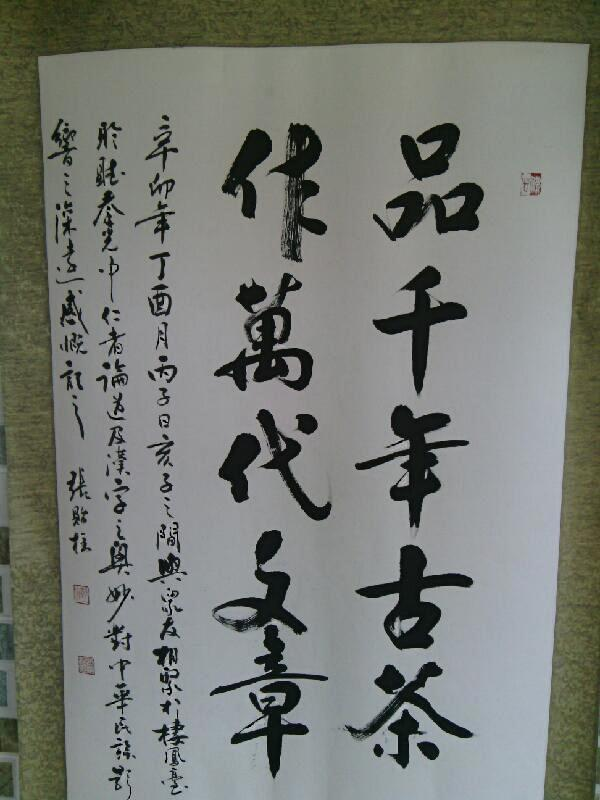 品千年古茶
作萬代文章
辛卯年丁酉月丙子日亥子之間與眾友相聚於棲鳳臺
聆聽秦光中仁者論道及漢字之奧妙對中華民族影
響之深遠感慨記之 張貽柱